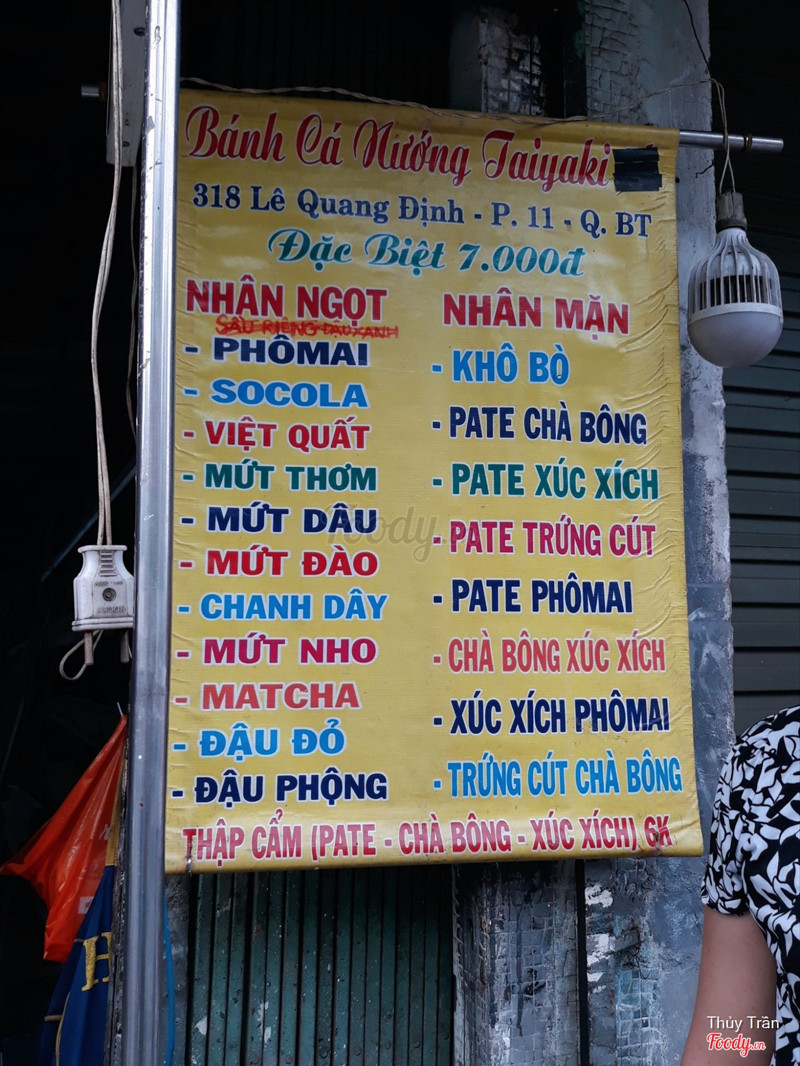 Bánh Cá Nướng Taiyaki
318 Lê Quang Định - P. 11 - Q. BT
Đặc Biệt 7.000đ
NHÂN NGỌT
SẦU RIÊNG ĐẬU XANH
- PHÔMAI
- SOCOLA
- VIỆT QUẤT
- MỨT THƠM
- MỨT DÂU
- MỨT ĐÀO
- CHANH DÂY
- MỨT NHO
- MATCHA
- ĐẬU ĐỎ
- ĐẬU PHỘNG
NHÂN MẶN
- KHÔ BÒ
- PATE CHÀ BÔNG
- PATE XÚC XÍCH
- PATE TRỨNG CÚT
- PATE PHÔMAI
- CHÀ BÔNG XÚC XÍCH
- XÚC XÍCH PHÔMAI
- TRỨNG CÚT CHÀ BÔNG
THẬP CẨM (PATE - CHÀ BÔNG - XÚC XÍCH) 6K
Foody
H
Thủy Trần
Foody.vn